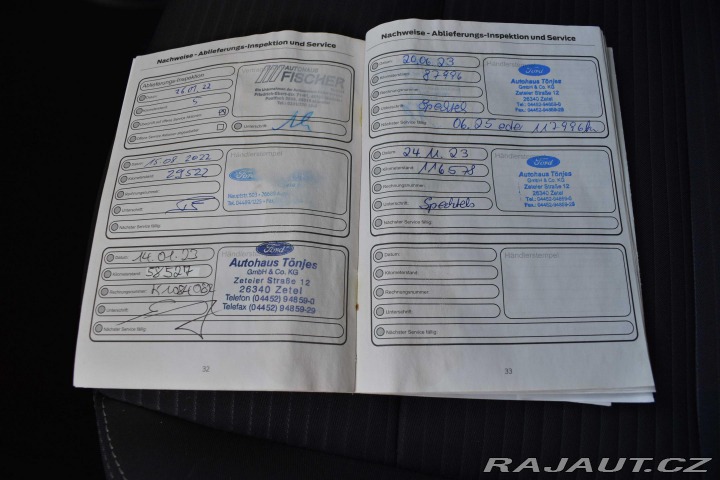 Nachweise - Ablieferungs-Inspektion und Service
Ablieferungs-Inspektion
AUTOHAUS
FISCHER
5
Unterschrift:
Datum: 15.08.2022
Händlerstempel:
Kilometerstand: 29522
Rechnungsnummer:
Unterschrift:
Nächster Service fällig:
Datum: 14.01.23
Händlerstempel
Kilometerstand: 58527
Rechnungsnummer:
Unterschrift:
Nächster Service fällig:
Ford
Autohaus Tönjes
GmbH & Co. KG
Zeteler Straße 12
26340 Zetel
Telefon (04452) 94859-0
Telefax (04452) 94859-29
32
Nachweise - Ablieferungs-Inspektion und Service
Datum: 20.06.23
Kilometerstand: 87996
Rechnungsnummer:
Unterschrift:
Nächster Service fällig: 06.25 oder 117996km
Ford
Autohaus Tönjes
GmbH & Co. KG
Zeteler Straße 12
26340 Zetel
Tel.: 04452-94859-0
Fax: 04452-94859-29
Datum: 24.11.23
Kilometerstand: 116578
Rechnungsnummer:
Unterschrift:
Nächster Service fällig:
Ford
Autohaus Tönjes
GmbH & Co. KG
Zeteler Straße 12
26340 Zetel
Tel.: 04452-94859-0
Fax: 04452-94859-29
Datum:
Händlerstempel:
Kilometerstand:
Rechnungsnummer:
Unterschrift:
Nächster Service fällig:
33
RAJAUT.CZ